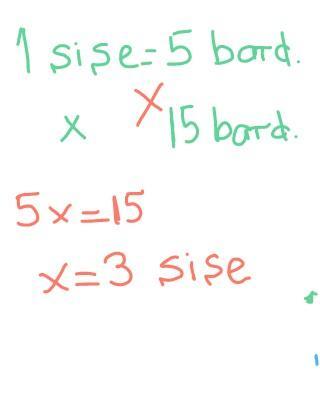 1 sişe = 5 bard.
x 15 bard.
5x = 15
x = 3 sişe